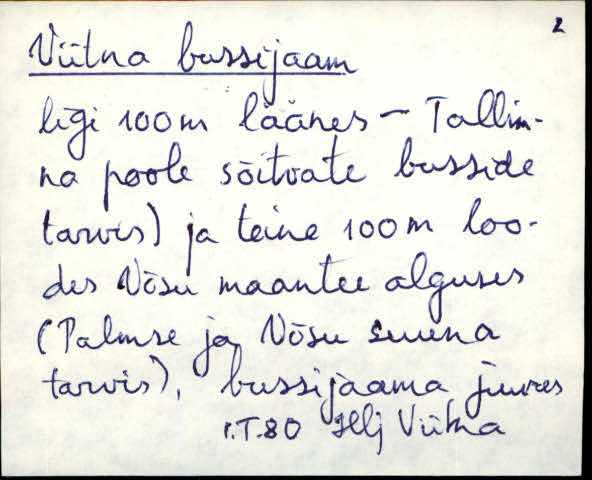 2
Viitna bussijaam
ligi 100m läänes – Tallin-
na poole sõitvate busside
tarvis) ja teine 100m loo-
des Võsu maantee alguses
(Palmse ja Võsu suuna
tarvis), bussijaama juures
r.T.80 Hlj Viitna